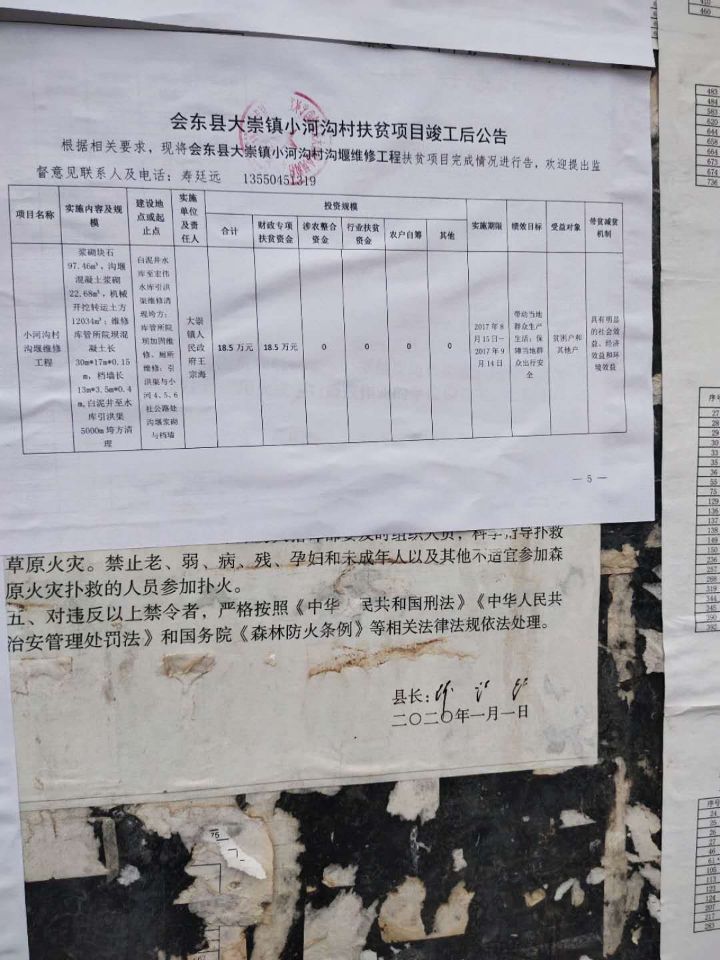 会东县大崇镇小河沟村扶贫项目竣工后公告
根据相关要求，现将会东县大崇镇小河沟村沟堰维修工程扶贫项目完成情况进行告，欢迎提出监
督意见联系人及电话：寿廷远 13550451319
项目名称
实施内容及规
模
建设地
点或起
止点
实施
单位
及责
任人
投资规模
合计
财政专项
扶贫资金
涉农整合
资金
行业扶贫
资金
农户自筹
其他
实施期限
绩效目标
受益对象
带贫减贫
机制
小河沟村
沟堰维修
工程
浆砌块石
97.46m³，沟堰
混凝土浆砌
22.68m³，机械
开挖转运土方
12034m³；维修
库管所院坝混
凝土长
30m*17m*0.15
m，档墙长
13m*3.5m*0.4
m,白泥井至水
库引洪渠
5000m 垮方清
理
白泥井水
库至宏伟
水库引洪
渠维修清
现垮方；
库管所院
坝加固维
修、厕所
维修；引
洪渠与小
河 4、5、6
社公路处
沟堰浆砌
与档墙
大崇
镇人
民政
府王
宗海
18.5 万元
18.5 万元
0
0
0
0
2017 年 8
月 15 日—
2017 年 9
月 14 日
带动当地
群众生产
生活；保
障当地群
众出行安
全
贫困户和
其他户
具有明显
的社会效
益、经济
效益和环
境效益
— 5 —
草原火灾。禁止老、弱、病、残、孕妇和未成年人以及其他不适宜参加森
原火灾扑救的人员参加扑火。
五、对违反以上禁令者，严格按照《中华人民共和国刑法》《中华人民共
治安管理处罚法》和国务院《森林防火条例》等相关法律法规依法处理。
县长：
二〇二〇年一月一日
460
483
484
583
520
564
658
664
673
674
736
序号
27
28
29
30
33
35
36
55
75
129
135
136
149
150
236
257
268
319
344
345
350
392
序号
24
25
26
27
46
61
105
113
123
124
207
217
283